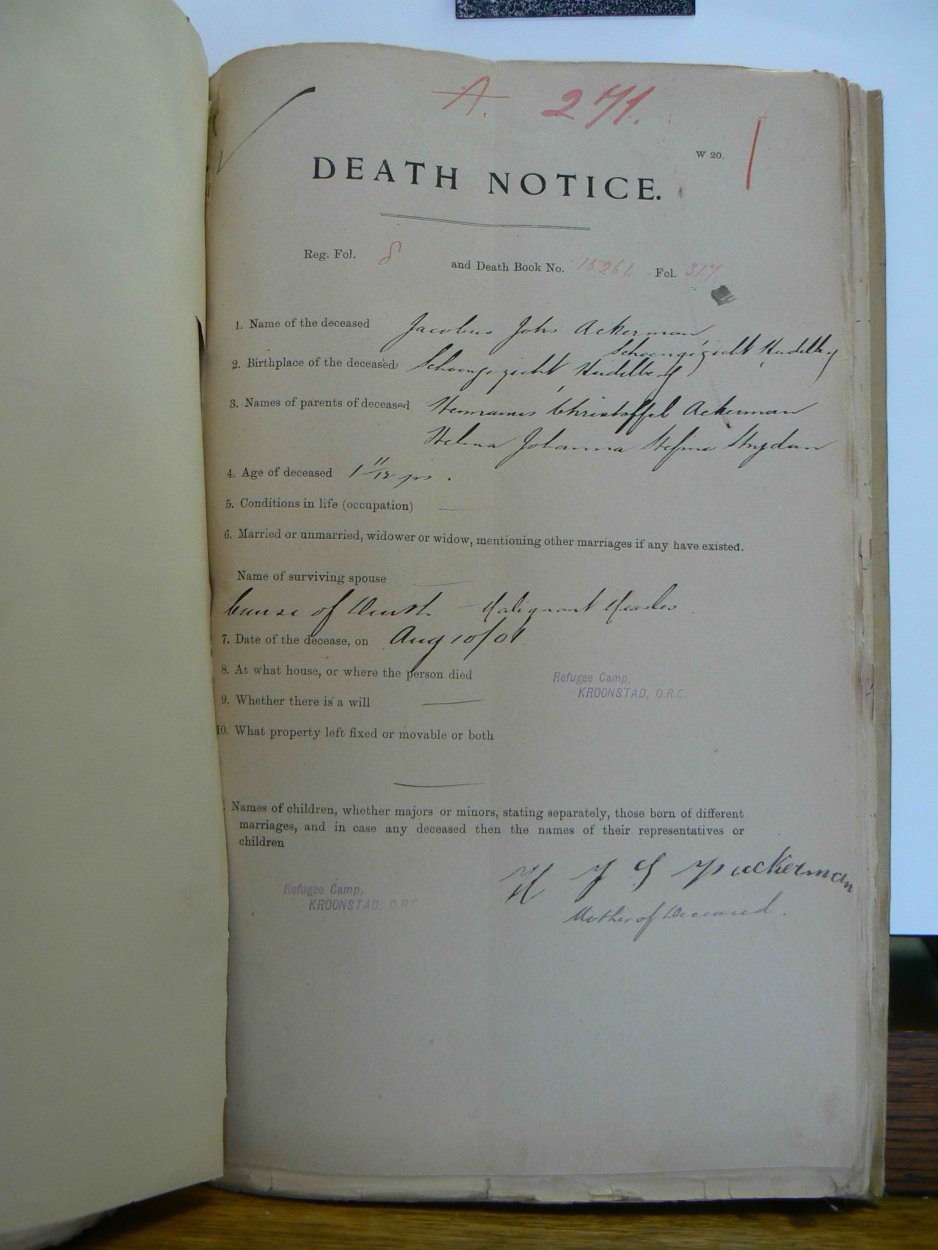 A. 271.
W 20.
DEATH NOTICE.
Reg. Fol. 8 and Death Book No. 15261 Fol. 317
1. Name of the deceased Jacobus Johs Ackerman
Schoongezicht Heidelberg
2. Birthplace of the deceased Schoongezicht Heidelberg
3. Names of parents of deceased Hermanus Christoffel Ackerman
Helena Johanna Strydom
4. Age of deceased 1 11/12 yrs.
5. Conditions in life (occupation)
6. Married or unmarried, widower or widow, mentioning other marriages if any have existed.
Name of surviving spouse
Cause of Death - Malignant Measles
7. Date of the decease, on Aug 10/01
8. At what house, or where the person died
Refugee Camp,
KROONSTAD, O.R.C.
9. Whether there is a will
10. What property left fixed or movable or both
Names of children, whether majors or minors, stating separately, those born of different
marriages, and in case any deceased then the names of their representatives or
children
H J S ackerman
Mother of Deceased.
Refugee Camp,
KROONSTAD, O.R.C.